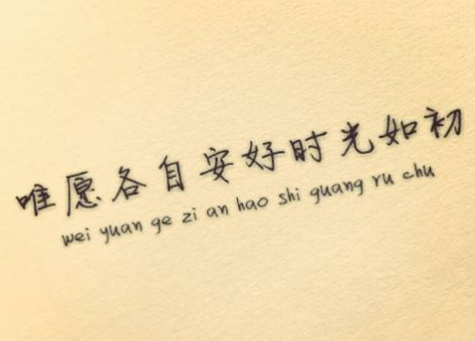 唯愿各自安好时光如初
wei yuan ge zi an hao shi guang ru chu